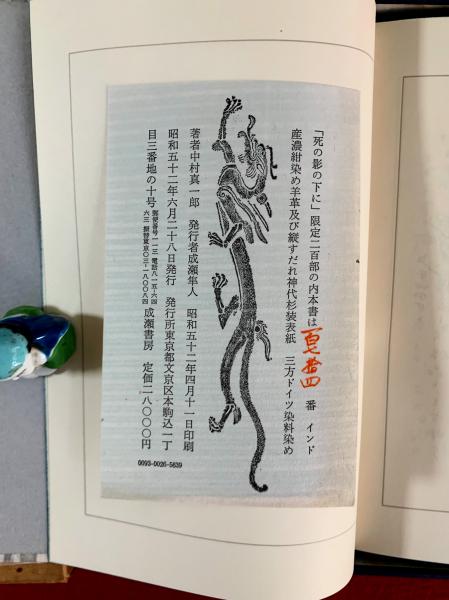 「死の影の下に」限定二百部の内本書は百七拾四番 インド
産濃紺染め羊革及び縦すだれ神代杉装表紙 三方ドイツ染料染め
著者中村真一郎 発行者成瀬隼人 昭和五十二年四月十一日印刷
昭和五十二年六月二十八日発行 発行所東京都文京区本駒込一丁
目三番地の十号 郵便番号一一三 電話八一五・六四
六三 振替東京〇三・一八〇〇八四 成瀬書房 定価二八〇〇〇円
0093-0026-5639